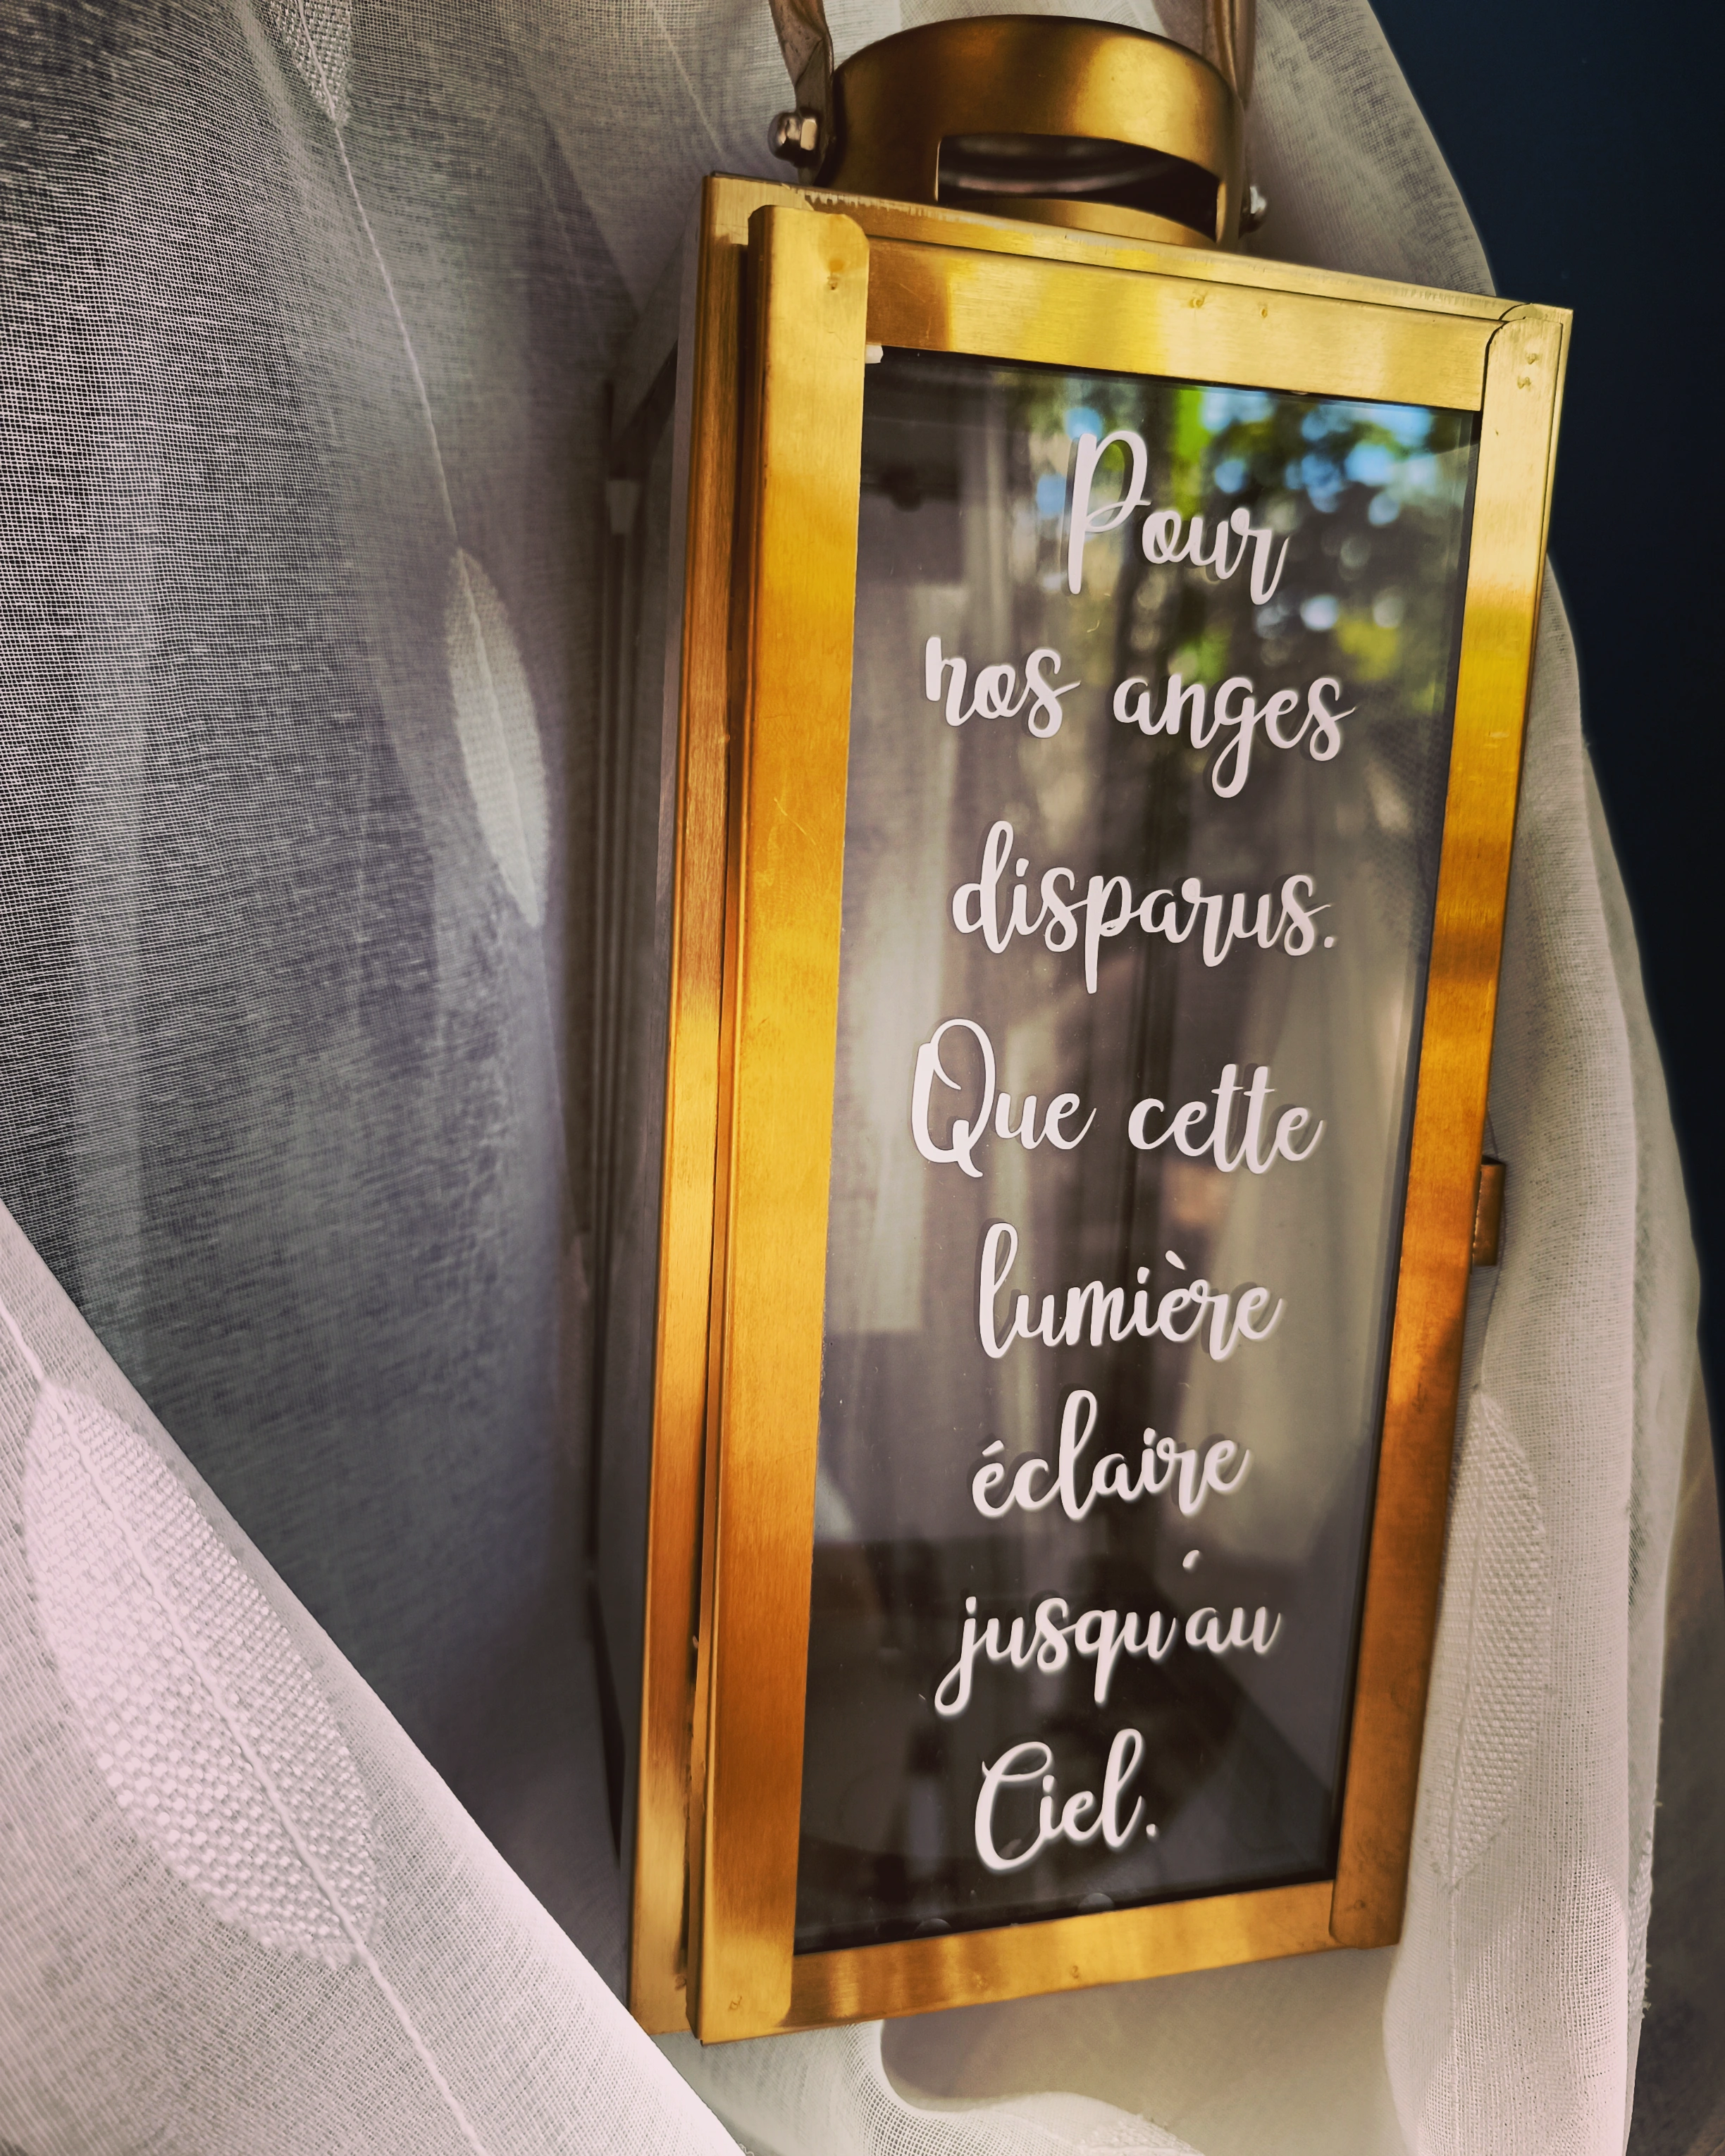 Pour
nos anges
disparus.
Que cette
lumière
éclaire
jusqu'au
Ciel.